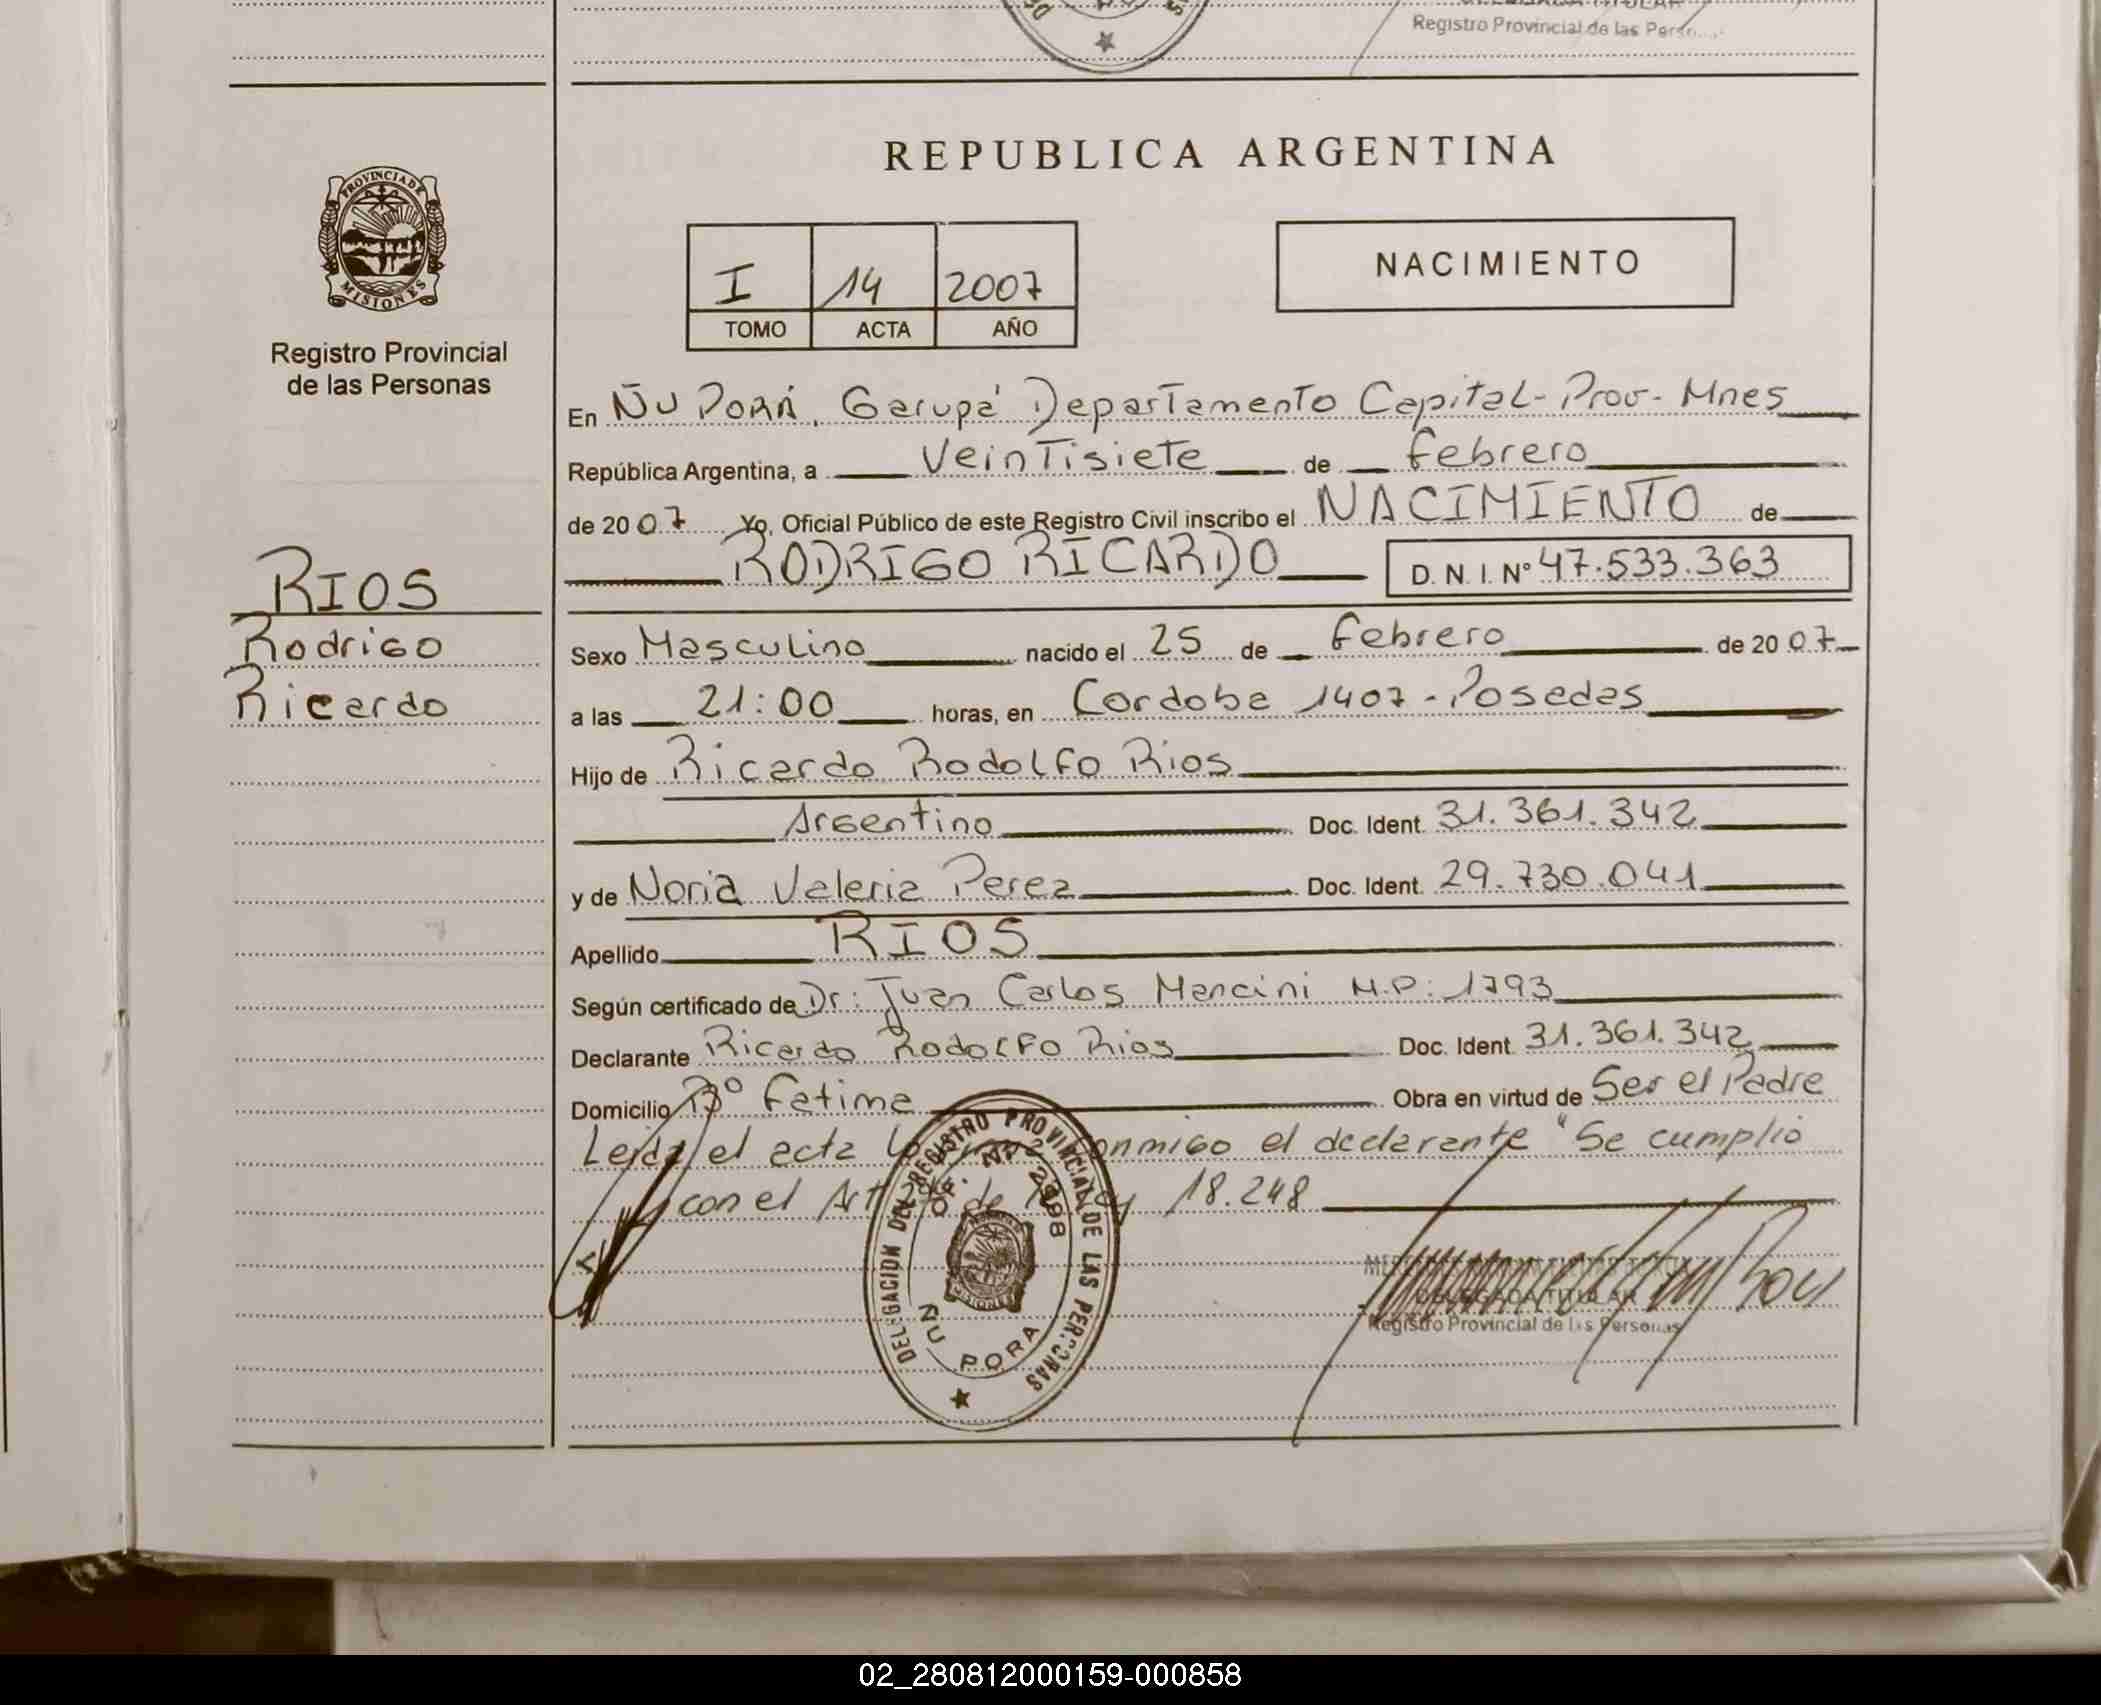 Registro Provincial de las Perso
PROVINCIA DE
MISIONES
Registro Provincial
de las Personas
REPUBLICA ARGENTINA
I 14 2007
TOMO ACTA AÑO
NACIMIENTO
En ÑU PORÁ, Garupá Departamento Capital - Prov - Mnes
República Argentina, a Veintisiete de Febrero
de 2007 Yo, Oficial Público de este Registro Civil inscribo el NACIMIENTO de
RODRIGO RICARDO D.N.I. Nº 47.533.363
RIOS
Rodrigo
Ricardo
Sexo Masculino nacido el 25 de Febrero de 2007
a las 21:00 horas, en Cordoba 1407 - Posadas
Hijo de Ricardo Rodolfo Rios
Argentino Doc. Ident. 31.361.342
y de Noria Valeria Perez Doc. Ident. 29.730.041
Apellido RIOS
Según certificado de Dr: Juan Carlos Mancini M.P: 1793
Declarante Ricardo Rodolfo Rios Doc. Ident. 31.361.342
Domicilio Bº Fatima Obra en virtud de Ser el Padre
Leida el acta la conmigo el declarante "Se cumplio
con el Art de Ley 18.248
DELEGACION DEL REGISTRO PROVINCIAL DE LAS PERSONAS
OF. Nº 2998
MISIONES
ÑU PORA
DELEGADA TITULAR
Registro Provincial de las Personas
02_280812000159-000858